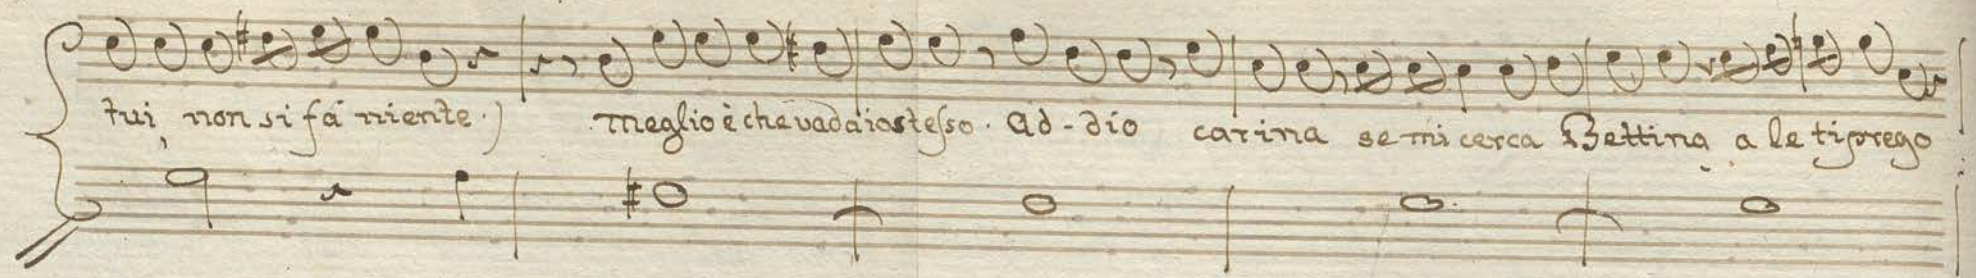 tui, non si fà niente.) meglio è che vada io stesso. Ad-dio carina se mi cerca Bettina a le ti prego